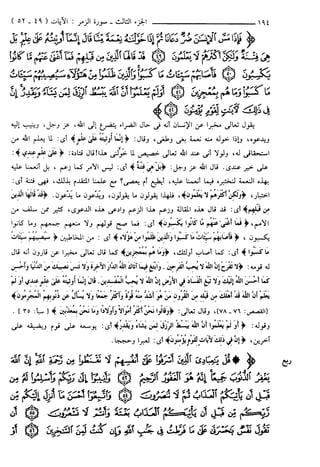 ١٩٤ الجزء الثالث ـ سورة الزمر : الآيات ( ٤٩ ـ ٥٢ )
﴿ فَإِذَا مَسَّ ٱلْإِنسَٰنَ ضُرٌّ دَعَانَا ثُمَّ إِذَا خَوَّلْنَٰهُ نِعْمَةً مِّنَّا قَالَ إِنَّمَآ أُوتِيتُهُۥ عَلَىٰ عِلْمٍۭ بَلْ
هِىَ فِتْنَةٌ وَلَٰكِنَّ أَكْثَرَهُمْ لَا يَعْلَمُونَ ﴿٤٩﴾ قَدْ قَالَهَا ٱلَّذِينَ مِن قَبْلِهِمْ فَمَآ أَغْنَىٰ عَنْهُم مَّا كَانُوا۟
يَكْسِبُونَ ﴿٥٠﴾ فَأَصَابَهُمْ سَيِّـَٔاتُ مَا كَسَبُوا۟ وَٱلَّذِينَ ظَلَمُوا۟ مِنْ هَٰٓؤُلَآءِ سَيُصِيبُهُمْ سَيِّـَٔاتُ
مَا كَسَبُوا۟ وَمَا هُم بِمُعْجِزِينَ ﴿٥١﴾ أَوَلَمْ يَعْلَمُوٓا۟ أَنَّ ٱللَّهَ يَبْسُطُ ٱلرِّزْقَ لِمَن يَشَآءُ وَيَقْدِرُ إِنَّ
فِى ذَٰلِكَ لَءَايَٰتٍ لِّقَوْمٍ يُؤْمِنُونَ ﴿٥٢﴾
يقول تعالى مخبرا عن الإنسان أنه فى حال الضراء يتضرع إلى الله، عز وجل، وينيب إليه
ويدعوه، وإذا خوله منه نعمة بغى وطغى، وقال: ﴿ إِنَّمَآ أُوتِيتُهُۥ عَلَىٰ عِلْمٍ ﴾ أى: لما يعلم الله من
استحقاقى له، ولولا أنى عند الله تعالى خصيص لما خَوَّلنى هذا! قال قتادة: ﴿ عَلَىٰ عِلْمٍ عِندِى ﴾:
على خير عندى. قال الله عز وجل: ﴿ بَلْ هِىَ فِتْنَةٌ ﴾ أى: ليس الأمر كما زعم ، بل أنعمنا عليه
بهذه النعمة لنختبره فيما أنعمنا عليه، أيطيع أم يعصى؟ مع علمنا المتقدم بذلك، فهى فتنة أى:
اختبار، ﴿ وَلَٰكِنَّ أَكْثَرَهُمْ لَا يَعْلَمُونَ ﴾، فلهذا يقولون ما يقولون، ويدَّعون ما يَدَّعون. ﴿ قَدْ قَالَهَا ٱلَّذِينَ
مِن قَبْلِهِمْ ﴾ أى: قد قال هذه المقالة وزعم هذا الزعم وادعى هذه الدعوى، كثير ممن سلف من
الأمم، ﴿ فَمَآ أَغْنَىٰ عَنْهُم مَّا كَانُوا۟ يَكْسِبُونَ ﴾ أى: فما صح قولهم ولا منعهم جمعهم وما كانوا
يكسبون ، ﴿ فَأَصَابَهُمْ سَيِّـَٔاتُ مَا كَسَبُوا۟ وَٱلَّذِينَ ظَلَمُوا۟ مِنْ هَٰٓؤُلَآءِ ﴾ أى: من المخاطبين ﴿ سَيُصِيبُهُمْ سَيِّـَٔاتُ
مَا كَسَبُوا۟ ﴾ أى: كما أصاب أولئك، ﴿ وَمَا هُم بِمُعْجِزِينَ ﴾ كما قال تعالى مخبرا عن قارون أنه قال
له قومه : ﴿ لَا تَفْرَحْ إِنَّ ٱللَّهَ لَا يُحِبُّ ٱلْفَرِحِينَ. وَٱبْتَغِ فِيمَآ ءَاتَىٰكَ ٱللَّهُ ٱلدَّارَ ٱلْءَاخِرَةَ وَلَا تَنسَ نَصِيبَكَ مِنَ ٱلدُّنْيَا وَأَحْسِن
كَمَآ أَحْسَنَ ٱللَّهُ إِلَيْكَ وَلَا تَبْغِ ٱلْفَسَادَ فِى ٱلْأَرْضِ إِنَّ ٱللَّهَ لَا يُحِبُّ ٱلْمُفْسِدِينَ. قَالَ إِنَّمَآ أُوتِيتُهُۥ عَلَىٰ عِلْمٍ عِندِىٓ أَوَ لَمْ
يَعْلَمْ أَنَّ ٱللَّهَ قَدْ أَهْلَكَ مِن قَبْلِهِۦ مِنَ ٱلْقُرُونِ مَنْ هُوَ أَشَدُّ مِنْهُ قُوَّةً وَأَكْثَرُ جَمْعًا وَلَا يُسْـَٔلُ عَن ذُنُوبِهِمُ ٱلْمُجْرِمُونَ ﴾
[القصص: ٧٦ ـ ٧٨]، وقال تعالى: ﴿ وَقَالُوا۟ نَحْنُ أَكْثَرُ أَمْوَٰلًا وَأَوْلَٰدًا وَمَا نَحْنُ بِمُعَذَّبِينَ ﴾ [ سبأ: ٣٥ ] .
وقوله: ﴿ أَوَ لَمْ يَعْلَمُوٓا۟ أَنَّ ٱللَّهَ يَبْسُطُ ٱلرِّزْقَ لِمَن يَشَآءُ وَيَقْدِرُ ﴾ أى: يوسعه على قوم ويضيقه على
آخرين، ﴿ إِنَّ فِى ذَٰلِكَ لَءَايَٰتٍ لِّقَوْمٍ يُؤْمِنُونَ ﴾ أى: لعبرا وحججا.
ربع ﴿ قُلْ يَٰعِبَادِىَ ٱلَّذِينَ أَسْرَفُوا۟ عَلَىٰٓ أَنفُسِهِمْ لَا تَقْنَطُوا۟ مِن رَّحْمَةِ ٱللَّهِ إِنَّ ٱللَّهَ
يَغْفِرُ ٱلذُّنُوبَ جَمِيعًا إِنَّهُۥ هُوَ ٱلْغَفُورُ ٱلرَّحِيمُ ﴿٥٣﴾ وَأَنِيبُوٓا۟ إِلَىٰ رَبِّكُمْ وَأَسْلِمُوا۟ لَهُۥ مِن قَبْلِ أَن
يَأْتِيَكُمُ ٱلْعَذَابُ ثُمَّ لَا تُنصَرُونَ ﴿٥٤﴾ وَٱتَّبِعُوٓا۟ أَحْسَنَ مَآ أُنزِلَ إِلَيْكُم مِّن
رَّبِّكُم مِّن قَبْلِ أَن يَأْتِيَكُمُ ٱلْعَذَابُ بَغْتَةً وَأَنتُمْ لَا تَشْعُرُونَ ﴿٥٥﴾ أَن
تَقُولَ نَفْسٌ يَٰحَسْرَتَىٰ عَلَىٰ مَا فَرَّطتُ فِى جَنۢبِ ٱللَّهِ وَإِن كُنتُ لَمِنَ ٱلسَّٰخِرِينَ ﴿٥٦﴾ أَوْ